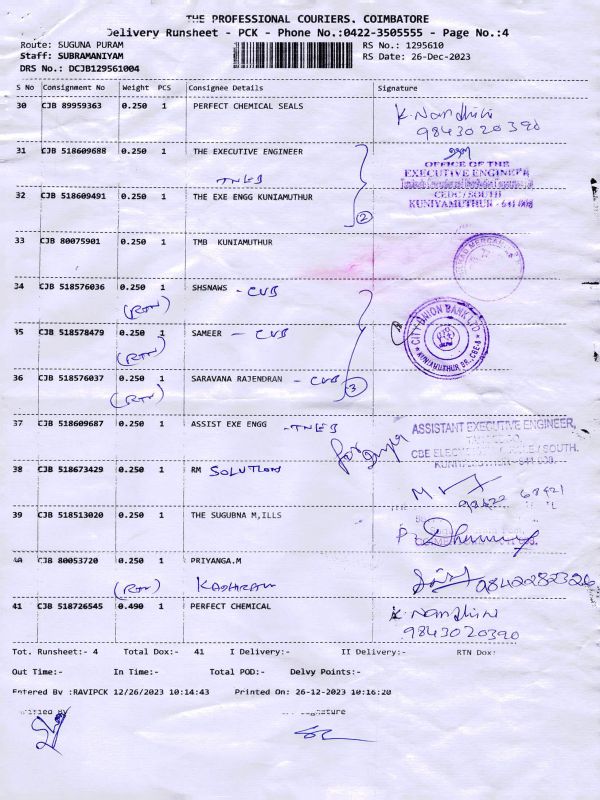 THE PROFESSIONAL COURIERS. COIMBATORE
Delivery Runsheet - PCK - Phone No.:0422-3505555 - Page No.:4
Route: SUGUNA PURAM RS No.: 1295610
Staff: SUBRAMANIYAM RS Date: 26-Dec-2023
DRS No.: DCJB129561004
S No Consignment No Weight PCS Consignee Details Signature
30 CJB 89959363 0.250 1 PERFECT CHEMICAL SEALS K. Nandhini
9843020390
31 CJB 518609688 0.250 1 THE EXECUTIVE ENGINEER
TNEB
OFFICE OF THE
EXECUTIVE ENGINEER
32 CJB 518609491 0.250 1 THE EXE ENGG KUNIAMUTHUR
CEDC / SOUTH
KUNIYAMUTHUR - 641 008
2
33 CJB 80075901 0.250 1 TMB KUNIAMUTHUR
34 CJB 518576036 0.250 1 SHSNAWS - CUB
(RTN)
35 CJB 518578479 0.250 1 SAMEER - CUB
(RTN)
CITY UNION BANK LTD
KUNIAMUTHUR BR., CBE-8
36 CJB 518576037 0.250 1 SARAVANA RAJENDRAN - CUB
(RTN)
3
37 CJB 518609687 0.250 1 ASSIST EXE ENGG - TNEB
for
ASSISTANT EXECUTIVE ENGINEER,
38 CJB 518673429 0.250 1 RM SOLUTION
98422 68421
39 CJB 518513020 0.250 1 THE SUGUBNA M,ILLS
40 CJB 80053720 0.250 1 PRIYANGA.M
(RTN)
9842282326
41 CJB 518726545 0.490 1 PERFECT CHEMICAL K. Nandhini
9843020390
Tot. Runsheet:- 4 Total Dox:- 41 I Delivery:- II Delivery:- RTN Dox:
Out Time:- In Time:- Total POD:- Delvy Points:-
Entered By :RAVIPCK 12/26/2023 10:14:43 Printed On: 26-12-2023 10:16:20